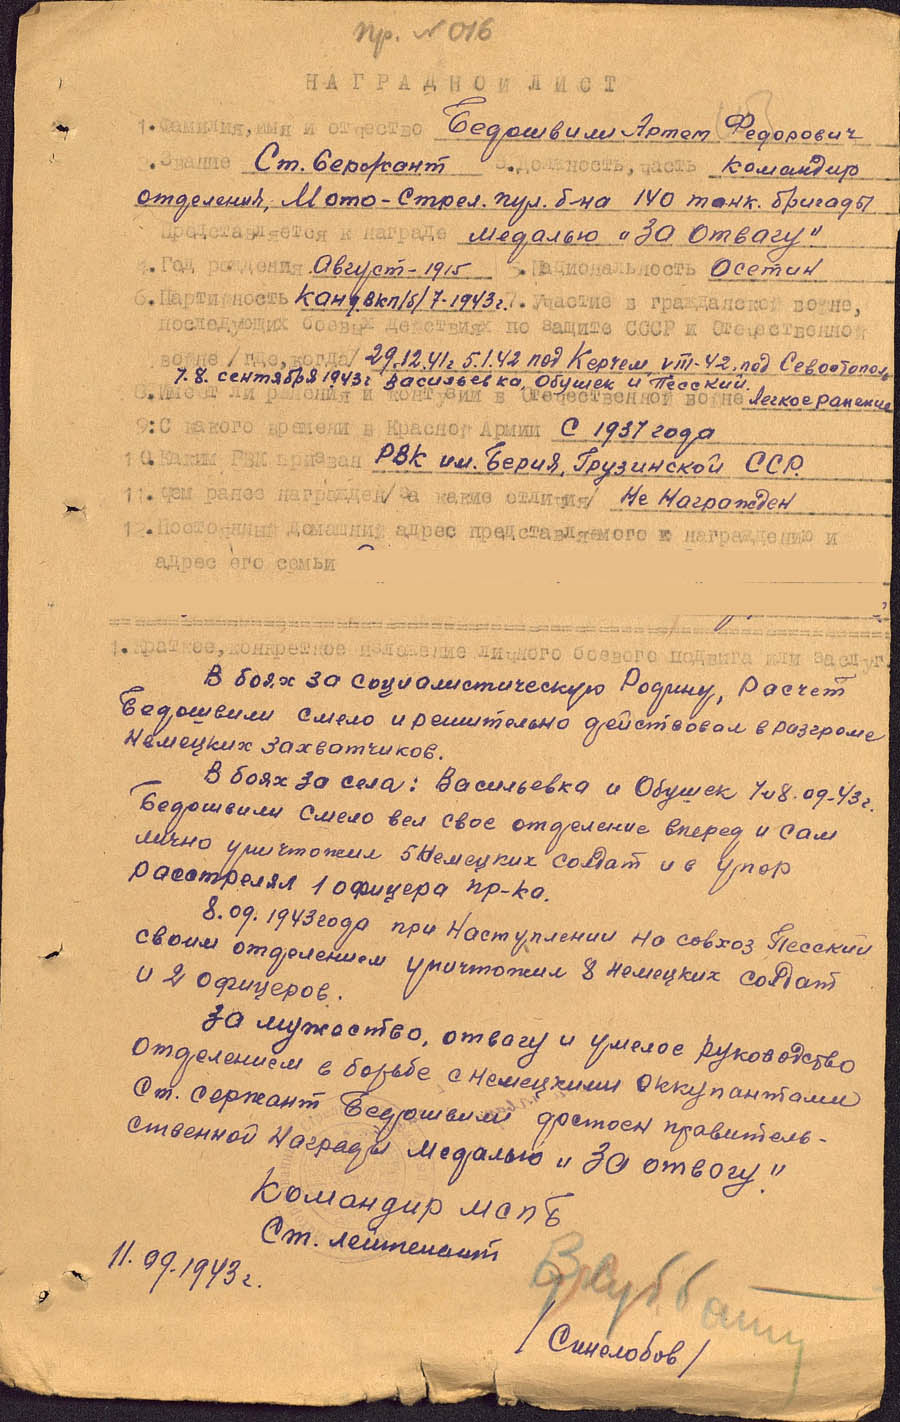 пр. № 016
НАГРАДНОЙ ЛИСТ
1. Фамилия, имя и отчество Бедошвили Артем Федорович
2. Звание Ст. Сержант 3. Должность, часть командир
отделения, Мото-Стрел. пул. б-на 140 танк. бригады
Представляется к награде медалью „За Отвагу"
4. Год рождения Август-1915 5. Национальность Осетин
6. Партийность канд. вкп/б/ 7-1943г. 7. Участие в гражданской войне,
последующих боевых действиях по защите СССР и Отечественной
войне /где, когда/ 29.12.41г 5.1.42 под Керчем, VIII-42. под Севостополь
7.8. сентября 1943г Васильевка, Обушек и Песский.
8. Имеет ли ранения и контузии в Отечественной войне Легкое ранение
9: С какого времени в Красной Армии С 1937 года
10. Каким РВК призван РВК им. Берия, Грузинской ССР.
11. Чем ранее награжден /за какие отличия/ Не Награжден
12. Постоянный домашний адрес представляемого к награждению и
адрес его семьи
1. Краткое, конкретное изложение личного боевого подвига или заслуг.
В боях за социалистическую Родину, Расчет
Бедошвили смело и решительно действовал в разгроме
Немецких захватчиков.
В боях за села: Васильевка и Обушек 7 и 8.09-43г.
Бедошвили смело вел свое отделение вперед и сам
лично уничтожил 5 Немецких солдат и в упор
расстрелял 1 офицера пр-ка.
8.09.1943 года при Наступлении на совхоз Песский
своим отделением уничтожил 8 немецких солдат
и 2 офицеров.
За мужество, отвагу и умелое руководство
Отделением в борьбе с немецкими оккупантами
Ст. сержант Бедошвили достоен правитель-
ственной Награды медалью „За отвогу".
Командир мспб
Ст. лейтенант
11.09.1943г.
/Синелобов/